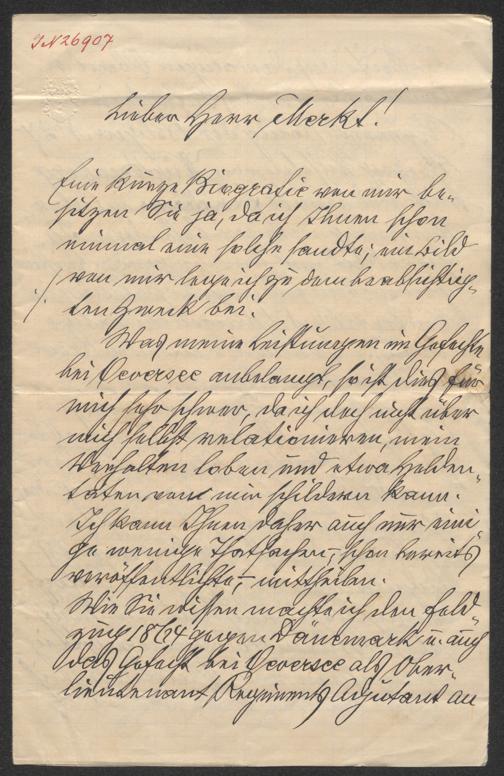 IN 26907
Lieber Herr Merkt!
Eine kurze Biografie von mir be-
sitzen Sie ja, da ich Ihnen schon
einmal eine solche sandte; ein Bild
von mir lege ich zu dem beabsichtig-
ten Zweck bei.
Was meine Leistungen im Gefechte
bei Oeversee anbelangt, so ist dies für
mich sehr schwer, da ich doch nicht über
mich selbst relationieren, mein
Verhalten loben und etwa Helden-
taten von mir schildern kann.
Ich kann Ihnen daher auch nur eini-
ge wenige Thatsachen, – schon bereits
veröffentlichte, – mittheilen.
Wie Sie wissen machte ich den Feld-
zug 1864 gegen Dänemark u. auch
das Gefecht bei Oeversee als Ober-
lieutenant, Regiments Adjutant an